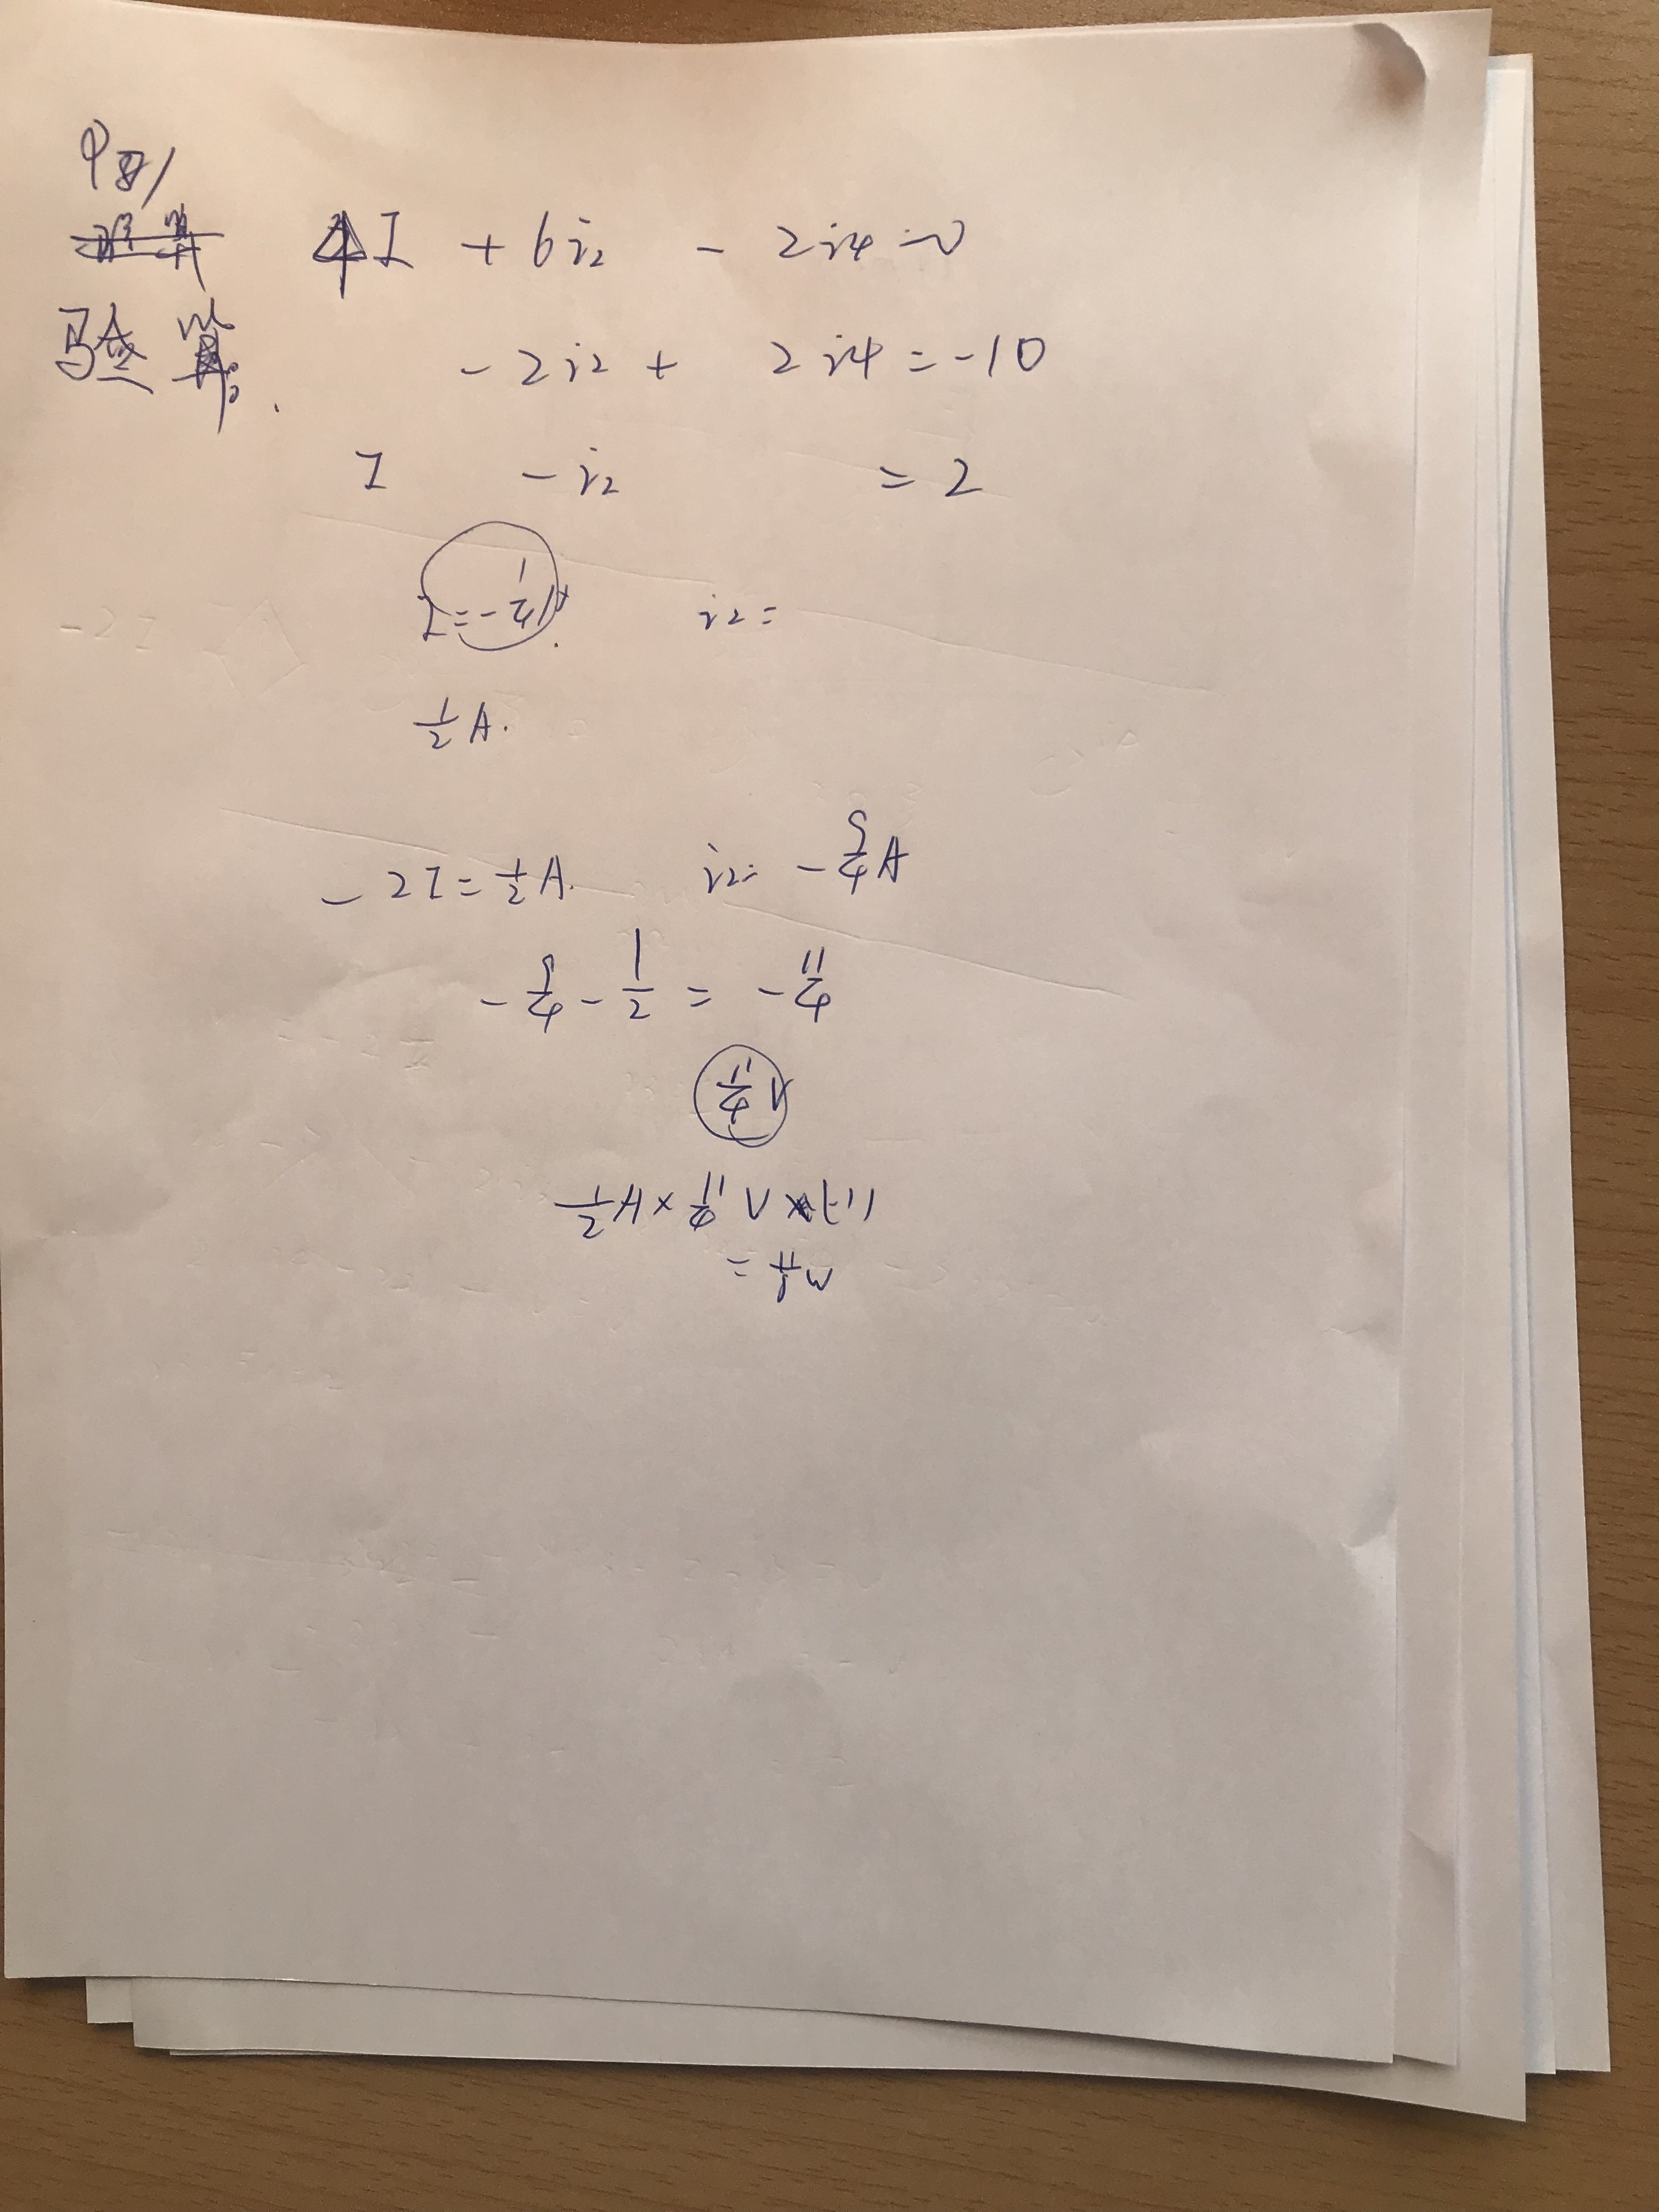 4I + 6i₂ - 2i4 = 0
验算:
- 2i2 + 2i4 = -10
I - i₂ = 2
I = -1/4 A. i₂ =
1/2 A.
- 2I = 1/2 A. i₂ = - 9/4 A
- 9/4 - 1/2 = - 11/4
11/4 V
1/2 A × 11/4 V × (-1)
= 11/8 W